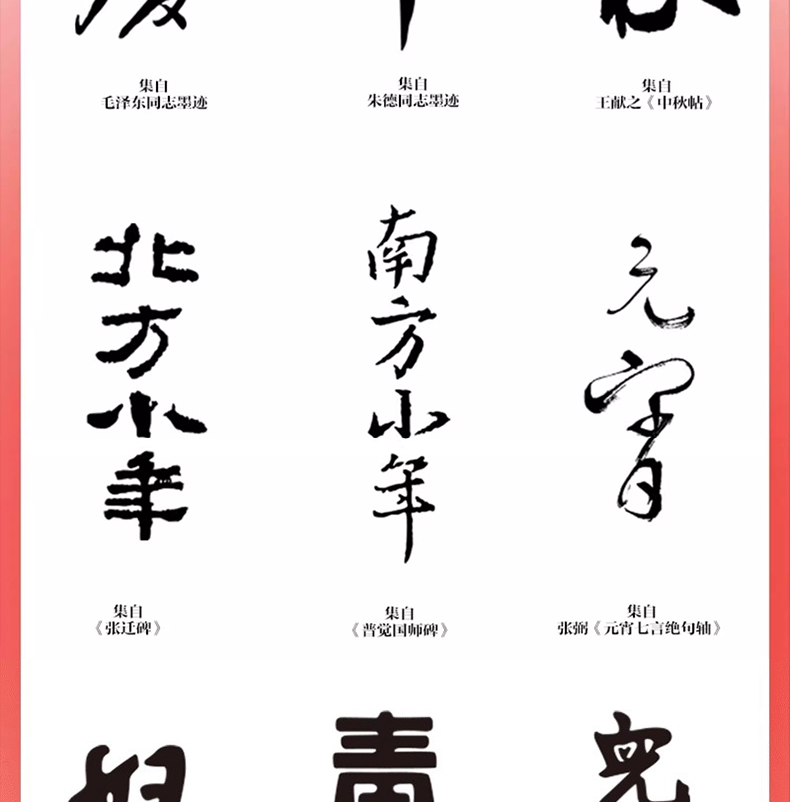 集自
毛泽东同志墨迹
集自
朱德同志墨迹
集自
王献之《中秋帖》
北方小年
南方小年
元宵
集自
《张迁碑》
集自
《普觉国师碑》
集自
张弼《元宵七言绝句轴》